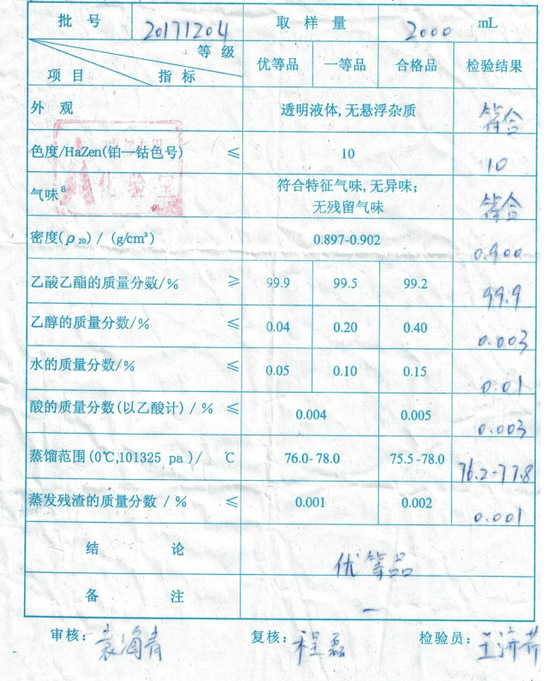 批 号 20171204 取 样 量 2000 mL
等 级
项 目 指 标 优等品 一等品 合格品 检验结果
外 观 透明液体,无悬浮杂质 符合
色度/HaZen(铂—钴色号) ≤ 10 10
气味a 符合特征气味,无异味; 符合
无残留气味
密度(ρ20) / (g/cm³) 0.897-0.902 0.900
乙酸乙酯的质量分数/% ≥ 99.9 99.5 99.2 99.9
乙醇的质量分数/% ≤ 0.04 0.20 0.40 0.003
水的质量分数/% ≤ 0.05 0.10 0.15 0.01
酸的质量分数(以乙酸计) / % ≤ 0.004 0.005 0.003
蒸馏范围(0℃,101325 pa )/ ℃ 76.0-78.0 75.5-78.0 76.2-77.8
蒸发残渣的质量分数 / % ≤ 0.001 0.002 0.001
结 论 优等品
备 注 —
审核: 袁海青 复核: 程磊 检验员:
化验室